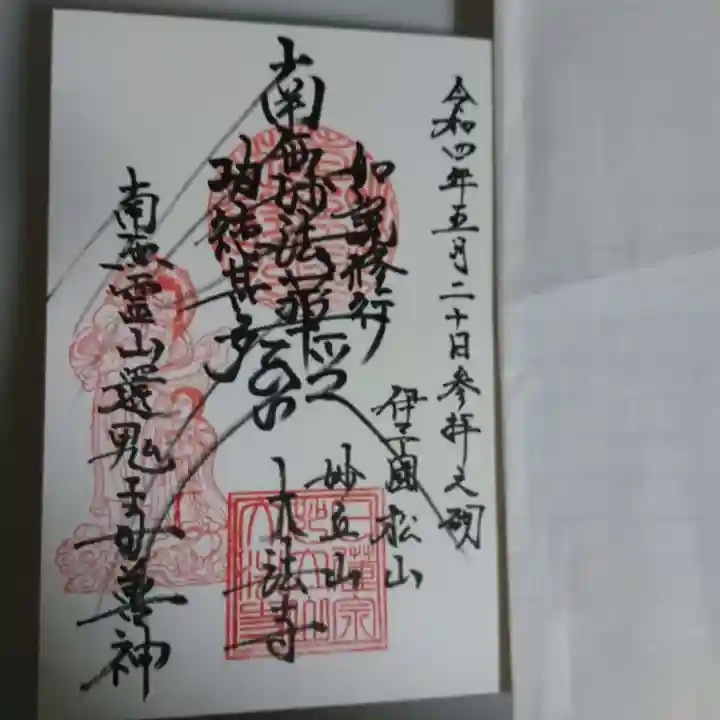 令和四年五月二十日参拝之砌
伊予国松山
如説修行
妙立山
南無妙法蓮華経
大法寺
功徳甚多
南無霊山還鬼子母尊神
日蓮宗